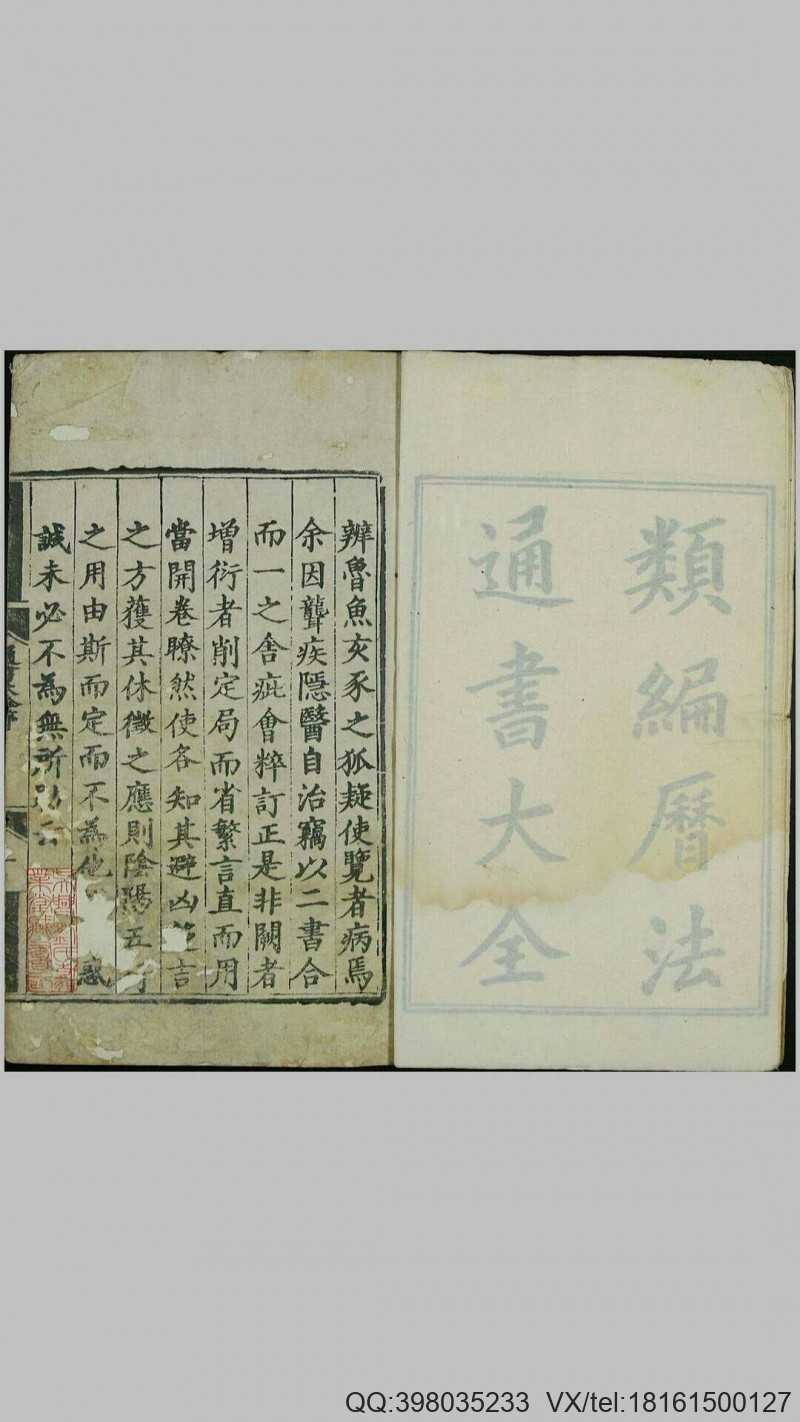 類編曆法
通書大全
辨魯魚亥豕之狐疑使覽者病焉
余因聾疾隱醫自治竊以二書合
而一之舍疵會粹訂正是非闕者
增衍者削定局而省繁言直而用
當開卷瞭然使各知其避凶言
之方獲其休徵之應則陰陽五
之用由斯而定而不為惑
誠未必不為無所云
QQ:398035233 VX/tel:18161500127